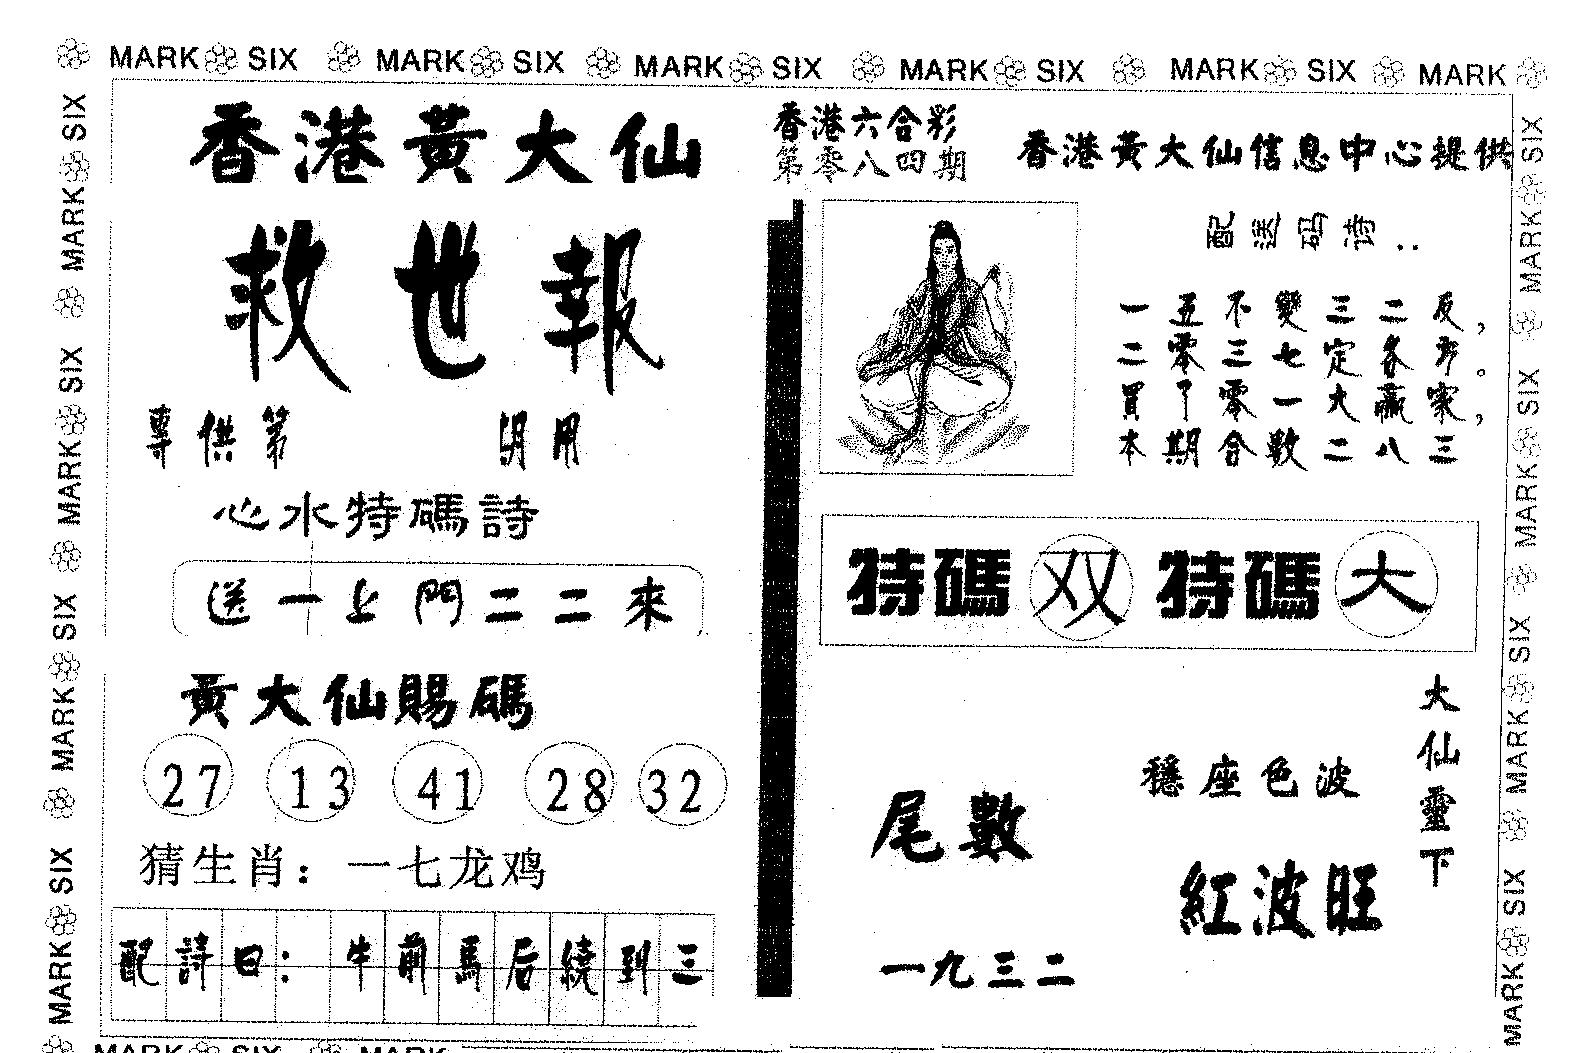 MARK SIX MARK SIX MARK SIX MARK SIX MARK SIX MARK
香港黃大仙
救世報
專供第 期用
心水特碼詩
送一上門二二來
黃大仙賜碼
27 13 41 28 32
猜生肖：一七龙鸡
配詩曰：牛前馬后繞到三
香港六合彩
第零八四期
香港黃大仙信息中心提供
配送码诗：
一五不變三二反，
二零三七定各
買了零一大贏家，
本期合數二八三
特碼双 特碼大
大仙靈下
穩座色波
紅波旺
尾數
一九三二
MARK SIX MARK SIX MARK SIX MARK SIX
MARK SIX MARK SIX MARK SIX MARK SIX
MARK SIX MARK